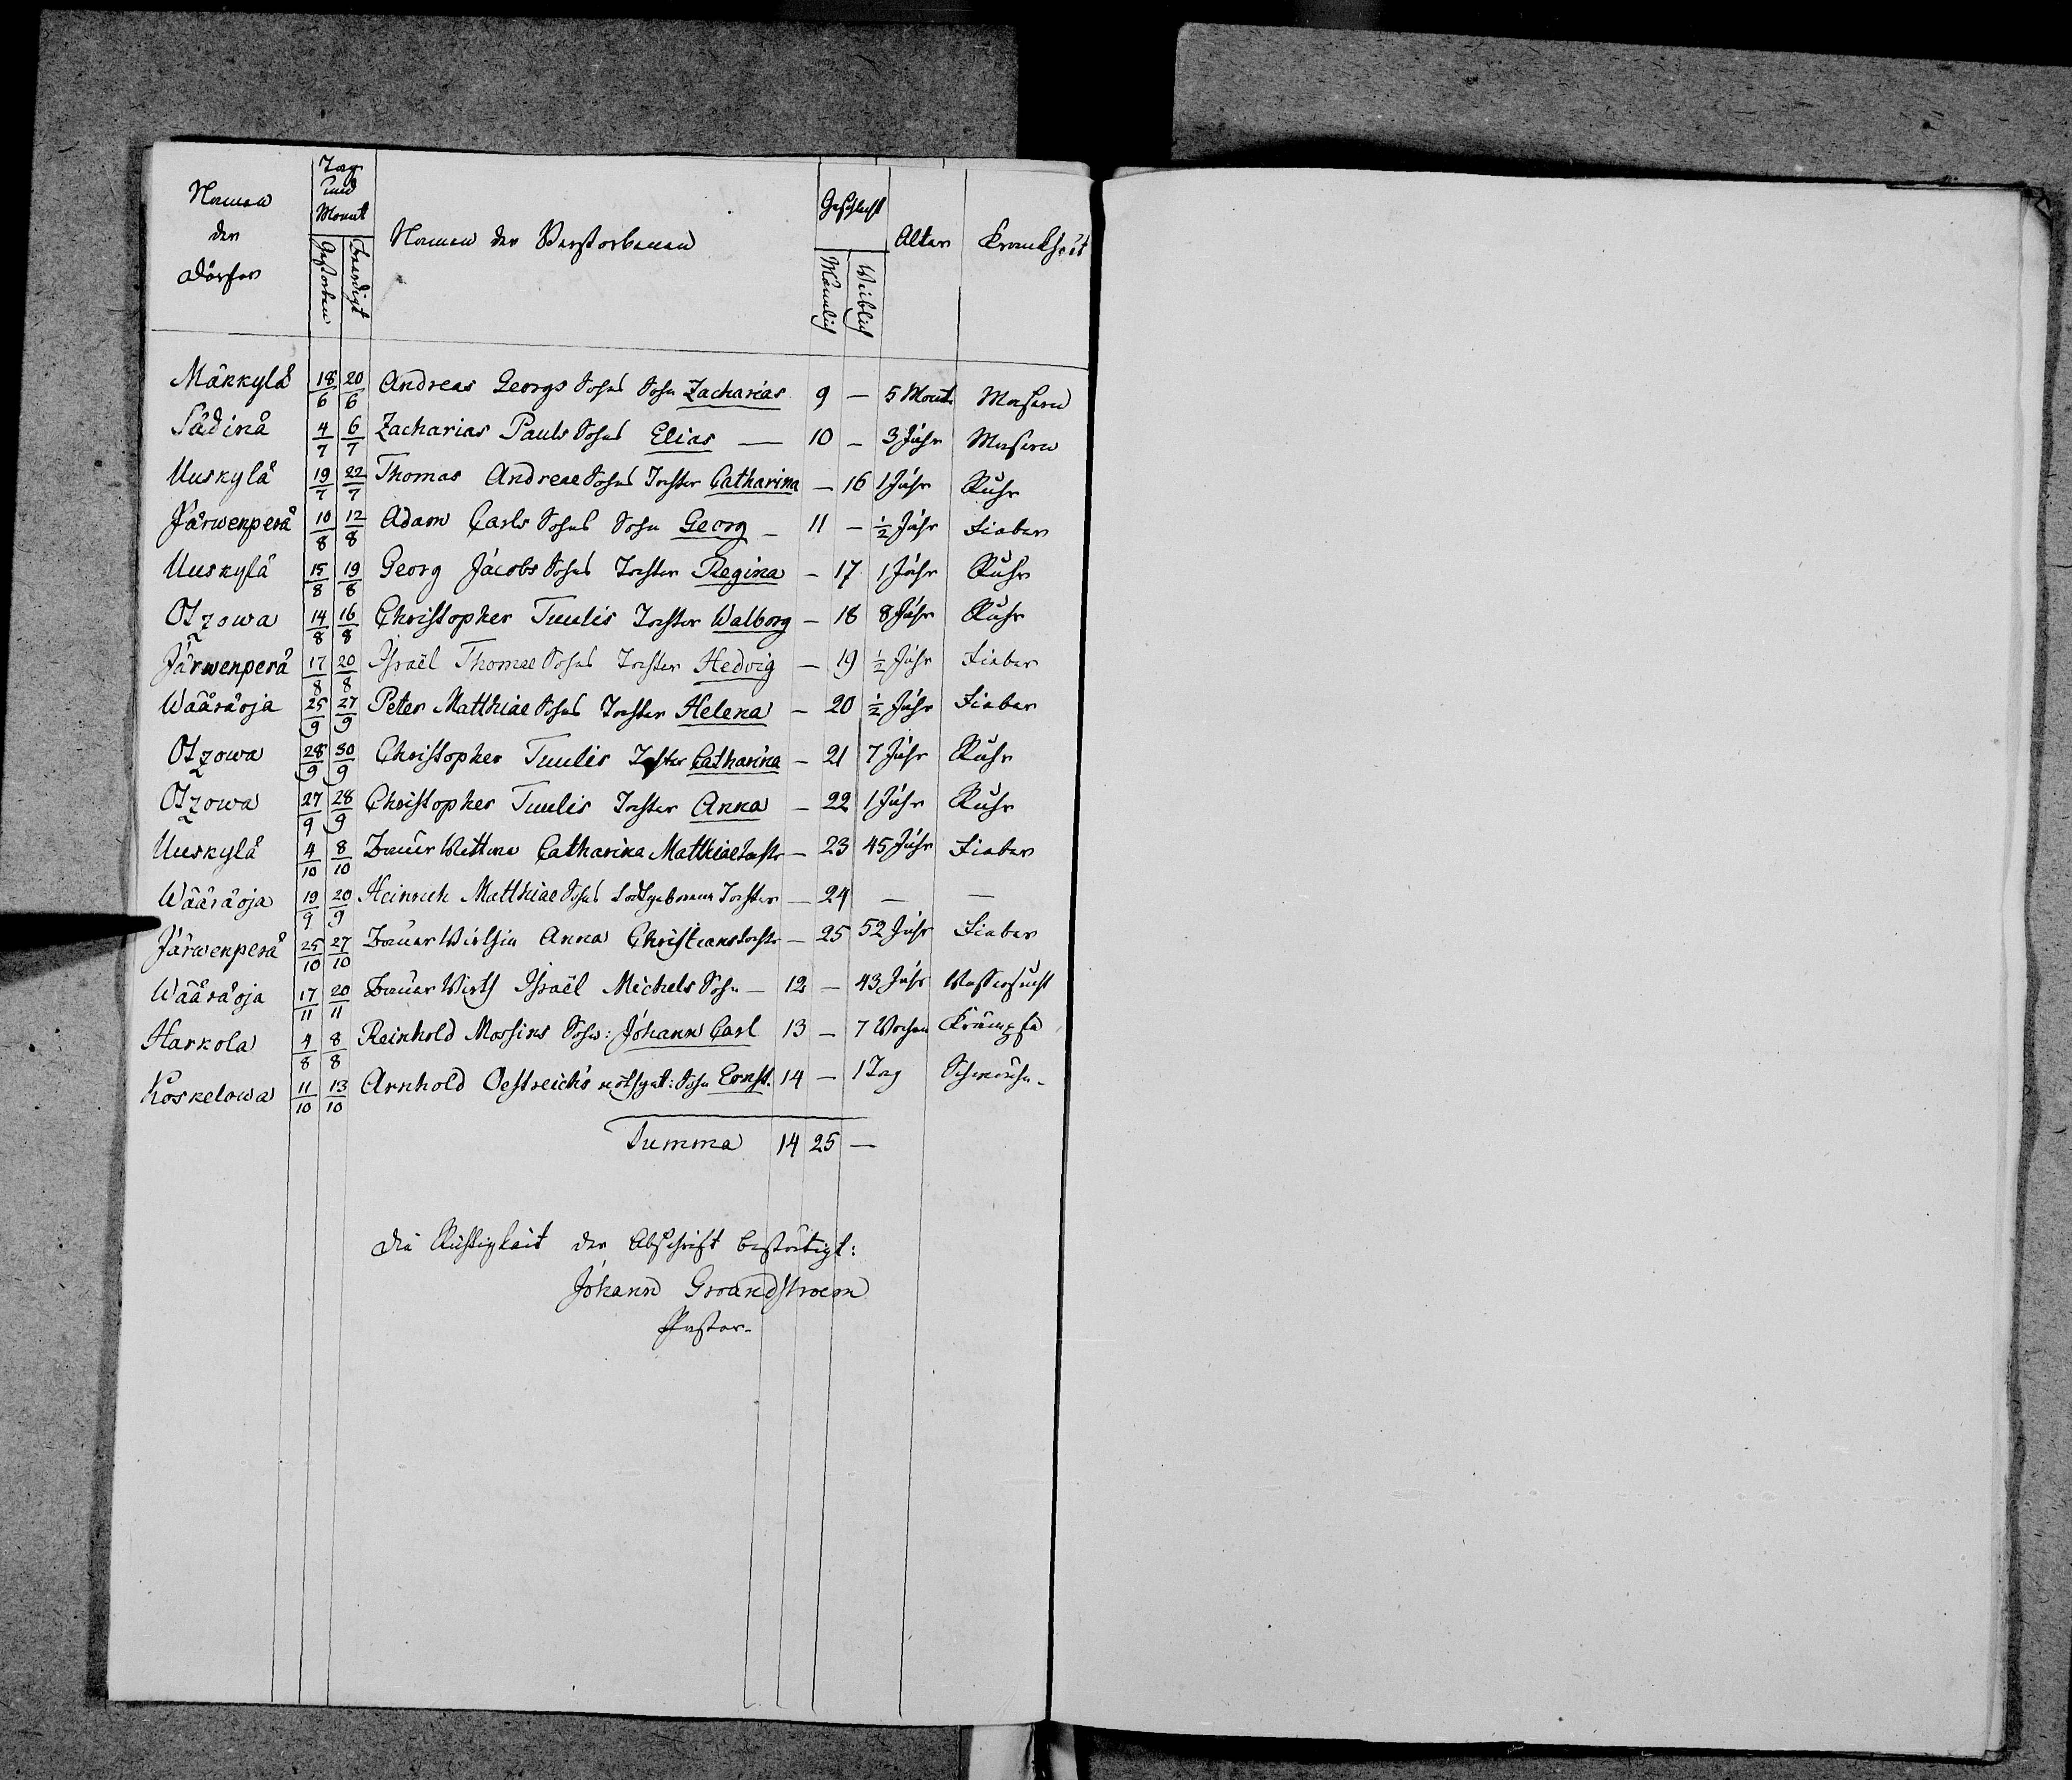 Namen der Dörfer | Tag und Monat: Gestorben | Beerdigt | Namen der Verstorbenen | Geschlecht: Mänlich | Weiblich | Alter | Krankheit
Mänkylä 18/6 20/6 Andreas Georgs Sohns Sohn Zacharias 9 — 5 Mont. Masern
Sädinä 4/7 6/7 Zacharias Pauls Sohns Elias — 10 — 3 Jahr Masern
Uuskylä 19/7 22/7 Thomas Andreae Sohns Tochter Catharina — 16 1 Jahr Ruhr
Järwenperä 10/8 12/8 Adam Carls Sohns Sohn Georg — 11 — ½ Jahr Fieber
Uuskylä 15/8 19/8 Georg Jacobs Sohns Tochter Regina — 17 1 Jahr Ruhr
Otzowa 14/8 16/8 Christopher Tuulis Tochter Walborg — 18 8 Jahr Ruhr
Järwenperä 17/8 20/8 Israël Thomae Sohns Tochter Hedvig — 19 ½ Jahr Fieber
Wääräoja 25/9 27/9 Peter Matthiae Sohns Tochter Helena — 20 ½ Jahr Fieber
Otzowa 28/9 30/9 Christopher Tuulis Tochter Catharina — 21 7 Jahr Ruhr
Otzowa 27/9 28/9 Christopher Tuulis Tochter Anna — 22 1 Jahr Ruhr
Uuskylä 4/10 8/10 Bauer Wittwe Catharina Matthiae Tochtr — 23 45 Jahr Fieber
Wääräoja 19/9 20/9 Heinrich Matthiae Sohns todtgeborene Tochter — 24 — —
Järwenperä 25/10 27/10 Bauer Wirthin Anna Christians Tochtr — 25 52 Jahr Fieber
Wääräoja 17/11 20/11 Bauer Wirth Israël Michels Sohn — 12 — 43 Jahr Wassersucht
Harkola 4/8 8/8 Reinhold Mossins Sohn: Johann Carl 13 — 7 Wochen Krämpfe
Koskelowa 11/10 13/10 Arnhold Oestreich's nothget: Sohn Ernst. 14 — 1 Tag Schwäche.
Summa 14 25 —
Die Richtigkeit der Abschrift bestätigt:
Johann Groundstroem
Pastor.